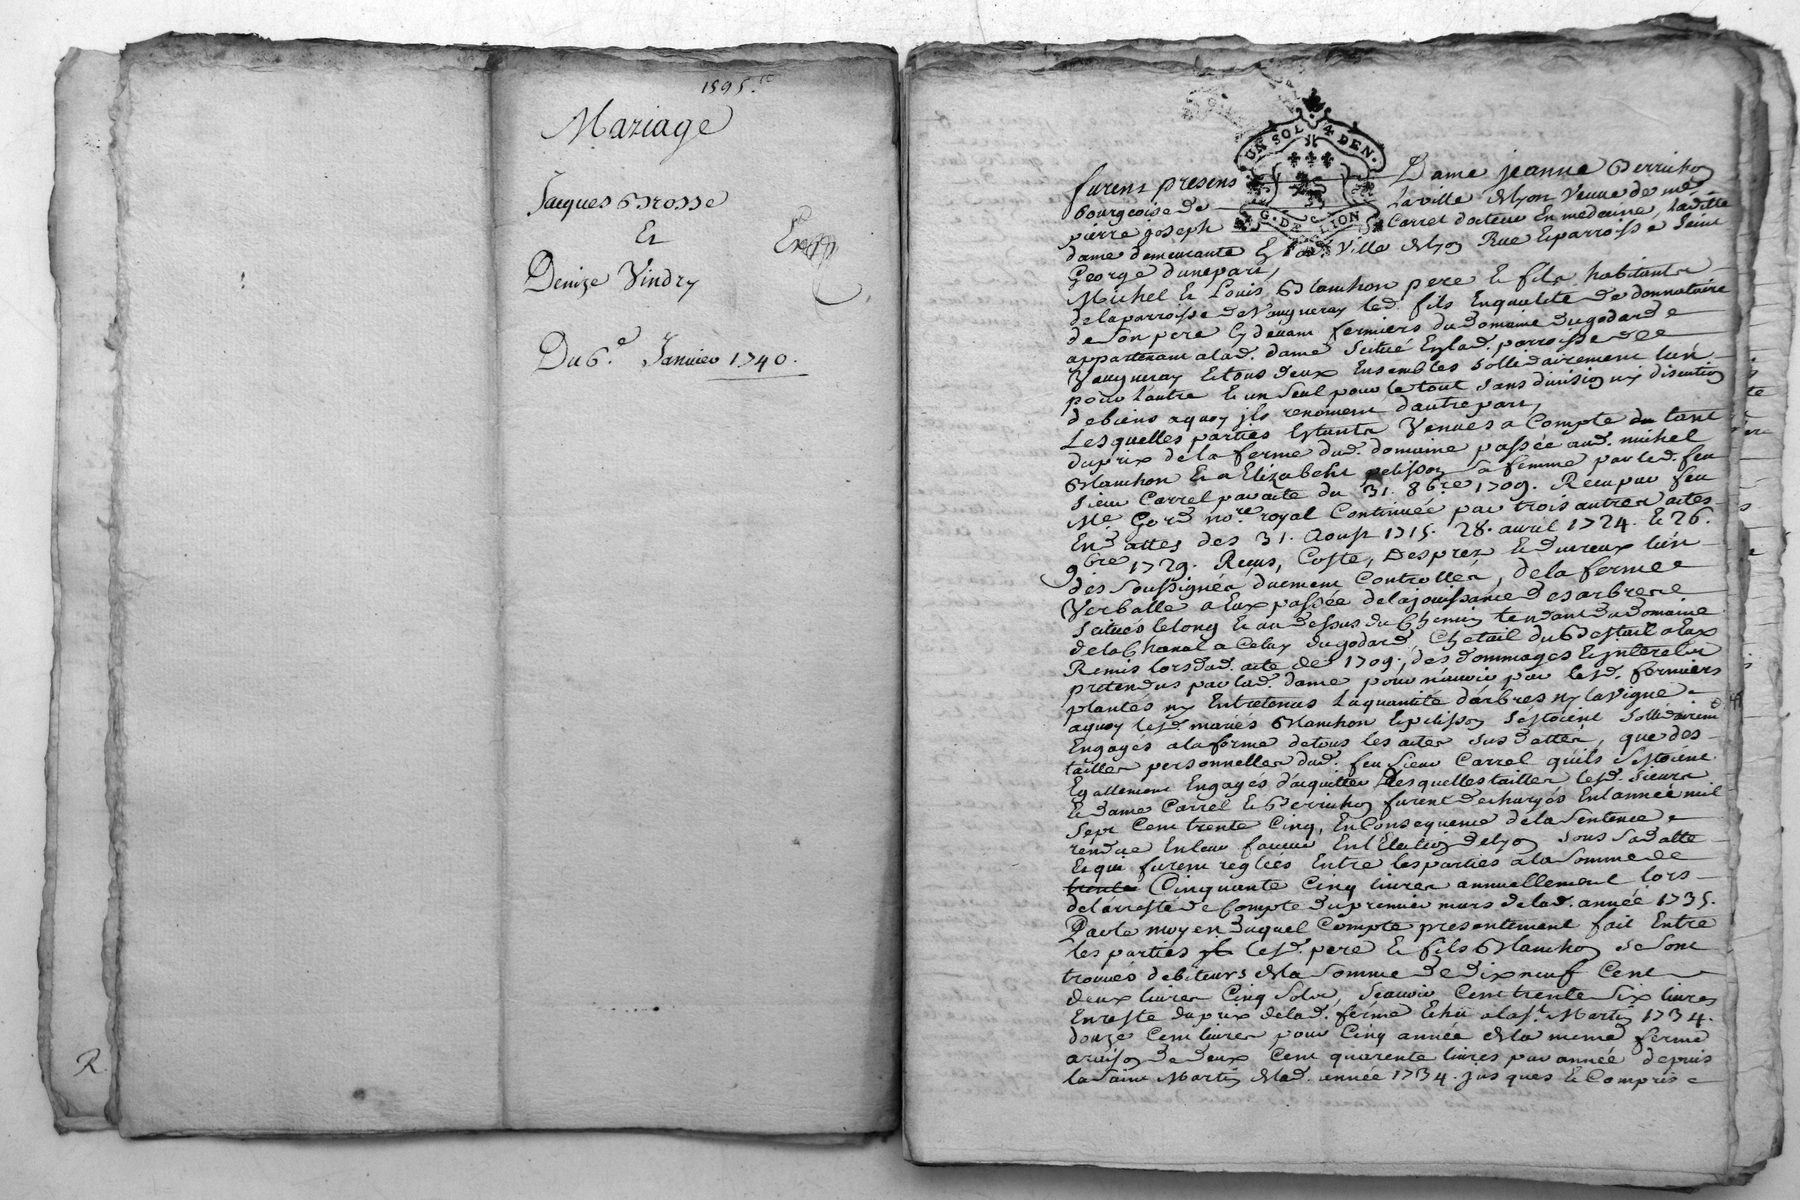 1595.tt
Mariage
Jacques Brosse
Et
Denize Vindry
Du 6.e Janvier 1740.
R
UN SOL. 4 DEN.
G. DE LION
furent presens Dame jeanne Perrichon
bourgeoise de la ville de Lyon Veuve de me
pierre joseph Carrel docteur En medecine, Ladite
dame demeurante En lad. Ville de Lyon Rue Et parroisse Saint
George d'une part,
Michel Et Louis Blanchon pere Et fils habitants
de la parroisse de Vaugneray led. fils En qualité de donnataire
de Son pere Cy devant fermiers du domaine du godard
appartenant a lad. dame Scitué En lad. parroisse de
Vaugneray Et tous deux Ensembles Sollidairement l'un
pour l'autre Et un Seul pour le tout Sans division ny discution
de biens a quoy ils renoncent d'autre part,
Lesquelles parties Estants Venues a Compte du tant
du prix de la ferme dud. domaine passée aud. michel
Blanchon Et a Elizabeht pelisson sa femme par led. feu
Sieur Carrel par acte du 31. 8bre 1709. Recu par feu
Me. Gord nore. royal Continuée par trois autres actes
En dattes des 31. Aoust 1715. 28. avril 1724. Et 26.
9bre 1729. Recus, Coste, Desprez Et dureux l'un
des Soussignés duement Controllés, de la ferme
Verballe a Eux passée de la jouissance des arbres
Scitués le long Et au dessus du Chemin tendant du domaine
de la Chanal a Celuy du godard, Chetail du Bestail a Eux
Remis lors dud. acte de 1709, des dommages Et Interests
pretendus par lad. dame pour n'avoir par lesd. fermiers
plantés ny Entretenus la quantité d'arbres ny la vigne
a quoy lesd. mariés Blanchon Et pelisson s'Estoient Sollidairemt
Engagés a la forme de tous les actes Sus dattés, que des
tailles personnelles dud. feu Sieur Carrel quils S'Estoient
Egallement Engagés d'acquitter Desquelles tailles lesd. Sieurs
Et dame Carrel Et Perrichon furent dechargés En l'année mil
Sept Cent trente Cinq, En Consequence de la Sentence
rendue En leur faveur En l'Election de Lyon sous Sa datte
Et qui furent reglées Entre les parties a la Somme de
trente Cinquante Cinq livres annuellement lors
de l'arresté de Compte du premier mars de lad. année 1735.
Par le moyen duquel Compte presentement fait Entre
les parties lesd. pere Et fils Blanchon se Sont
trouvés debiteurs de la Somme de dix neuf Cent
deux livres Cinq Sols, Scavoir Cent trente Six livres
En reste du prix de lad. ferme Echu a la St. Martin 1734.
douze Cent livres pour Cinq année de la meme ferme
a raison de deux Cent quarente livres par année depuis
la Saint Martin de lad. année 1734. jusques Et Compris